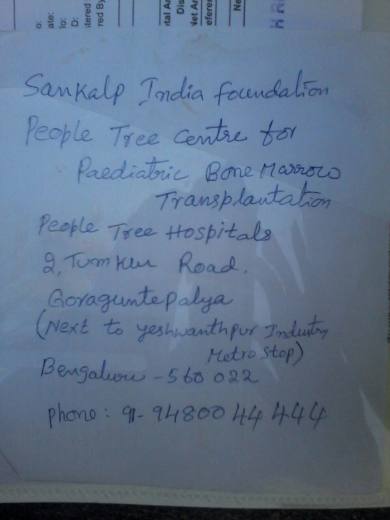 Sankalp India foundation
People Tree Centre for
Paediatric Bone Marrow
Transplantation
People Tree Hospitals
2, Tumkur Road.
Goraguntepalya
(Next to yeshwanthpur Industry
Metro Stop)
Bengaluru - 560 022
phone: 91- 94800 44 444